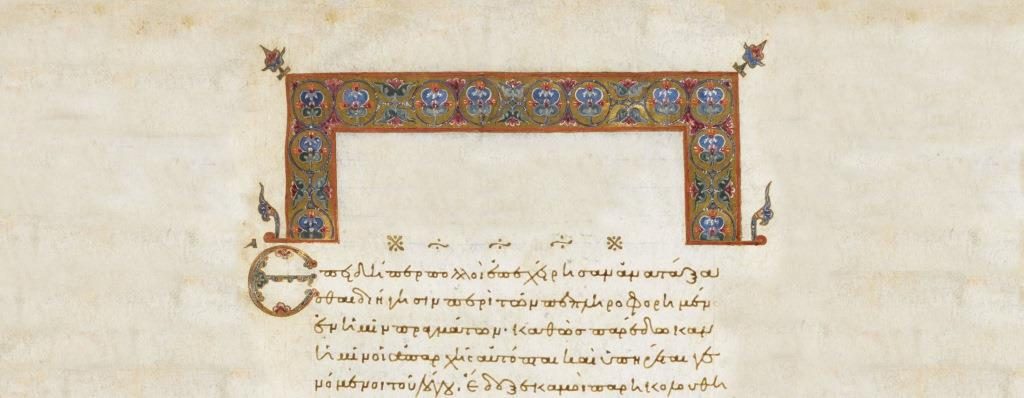 Ἐπειδήπερ πολλοὶ ἐπεχείρησαν ἀνατάξα
σθαι διήγησιν περὶ τῶν πεπληροφορημένων
ἐν ἡμῖν πραγμάτων· καθὼς παρέδωκαν
ἡμῖν οἱ ἀπαρχῆς αὐτόπται καὶ ὑπηρέται γε
νόμενοι τοῦ λόγου. Ἔδοξε κἀμοὶ παρηκολουθη